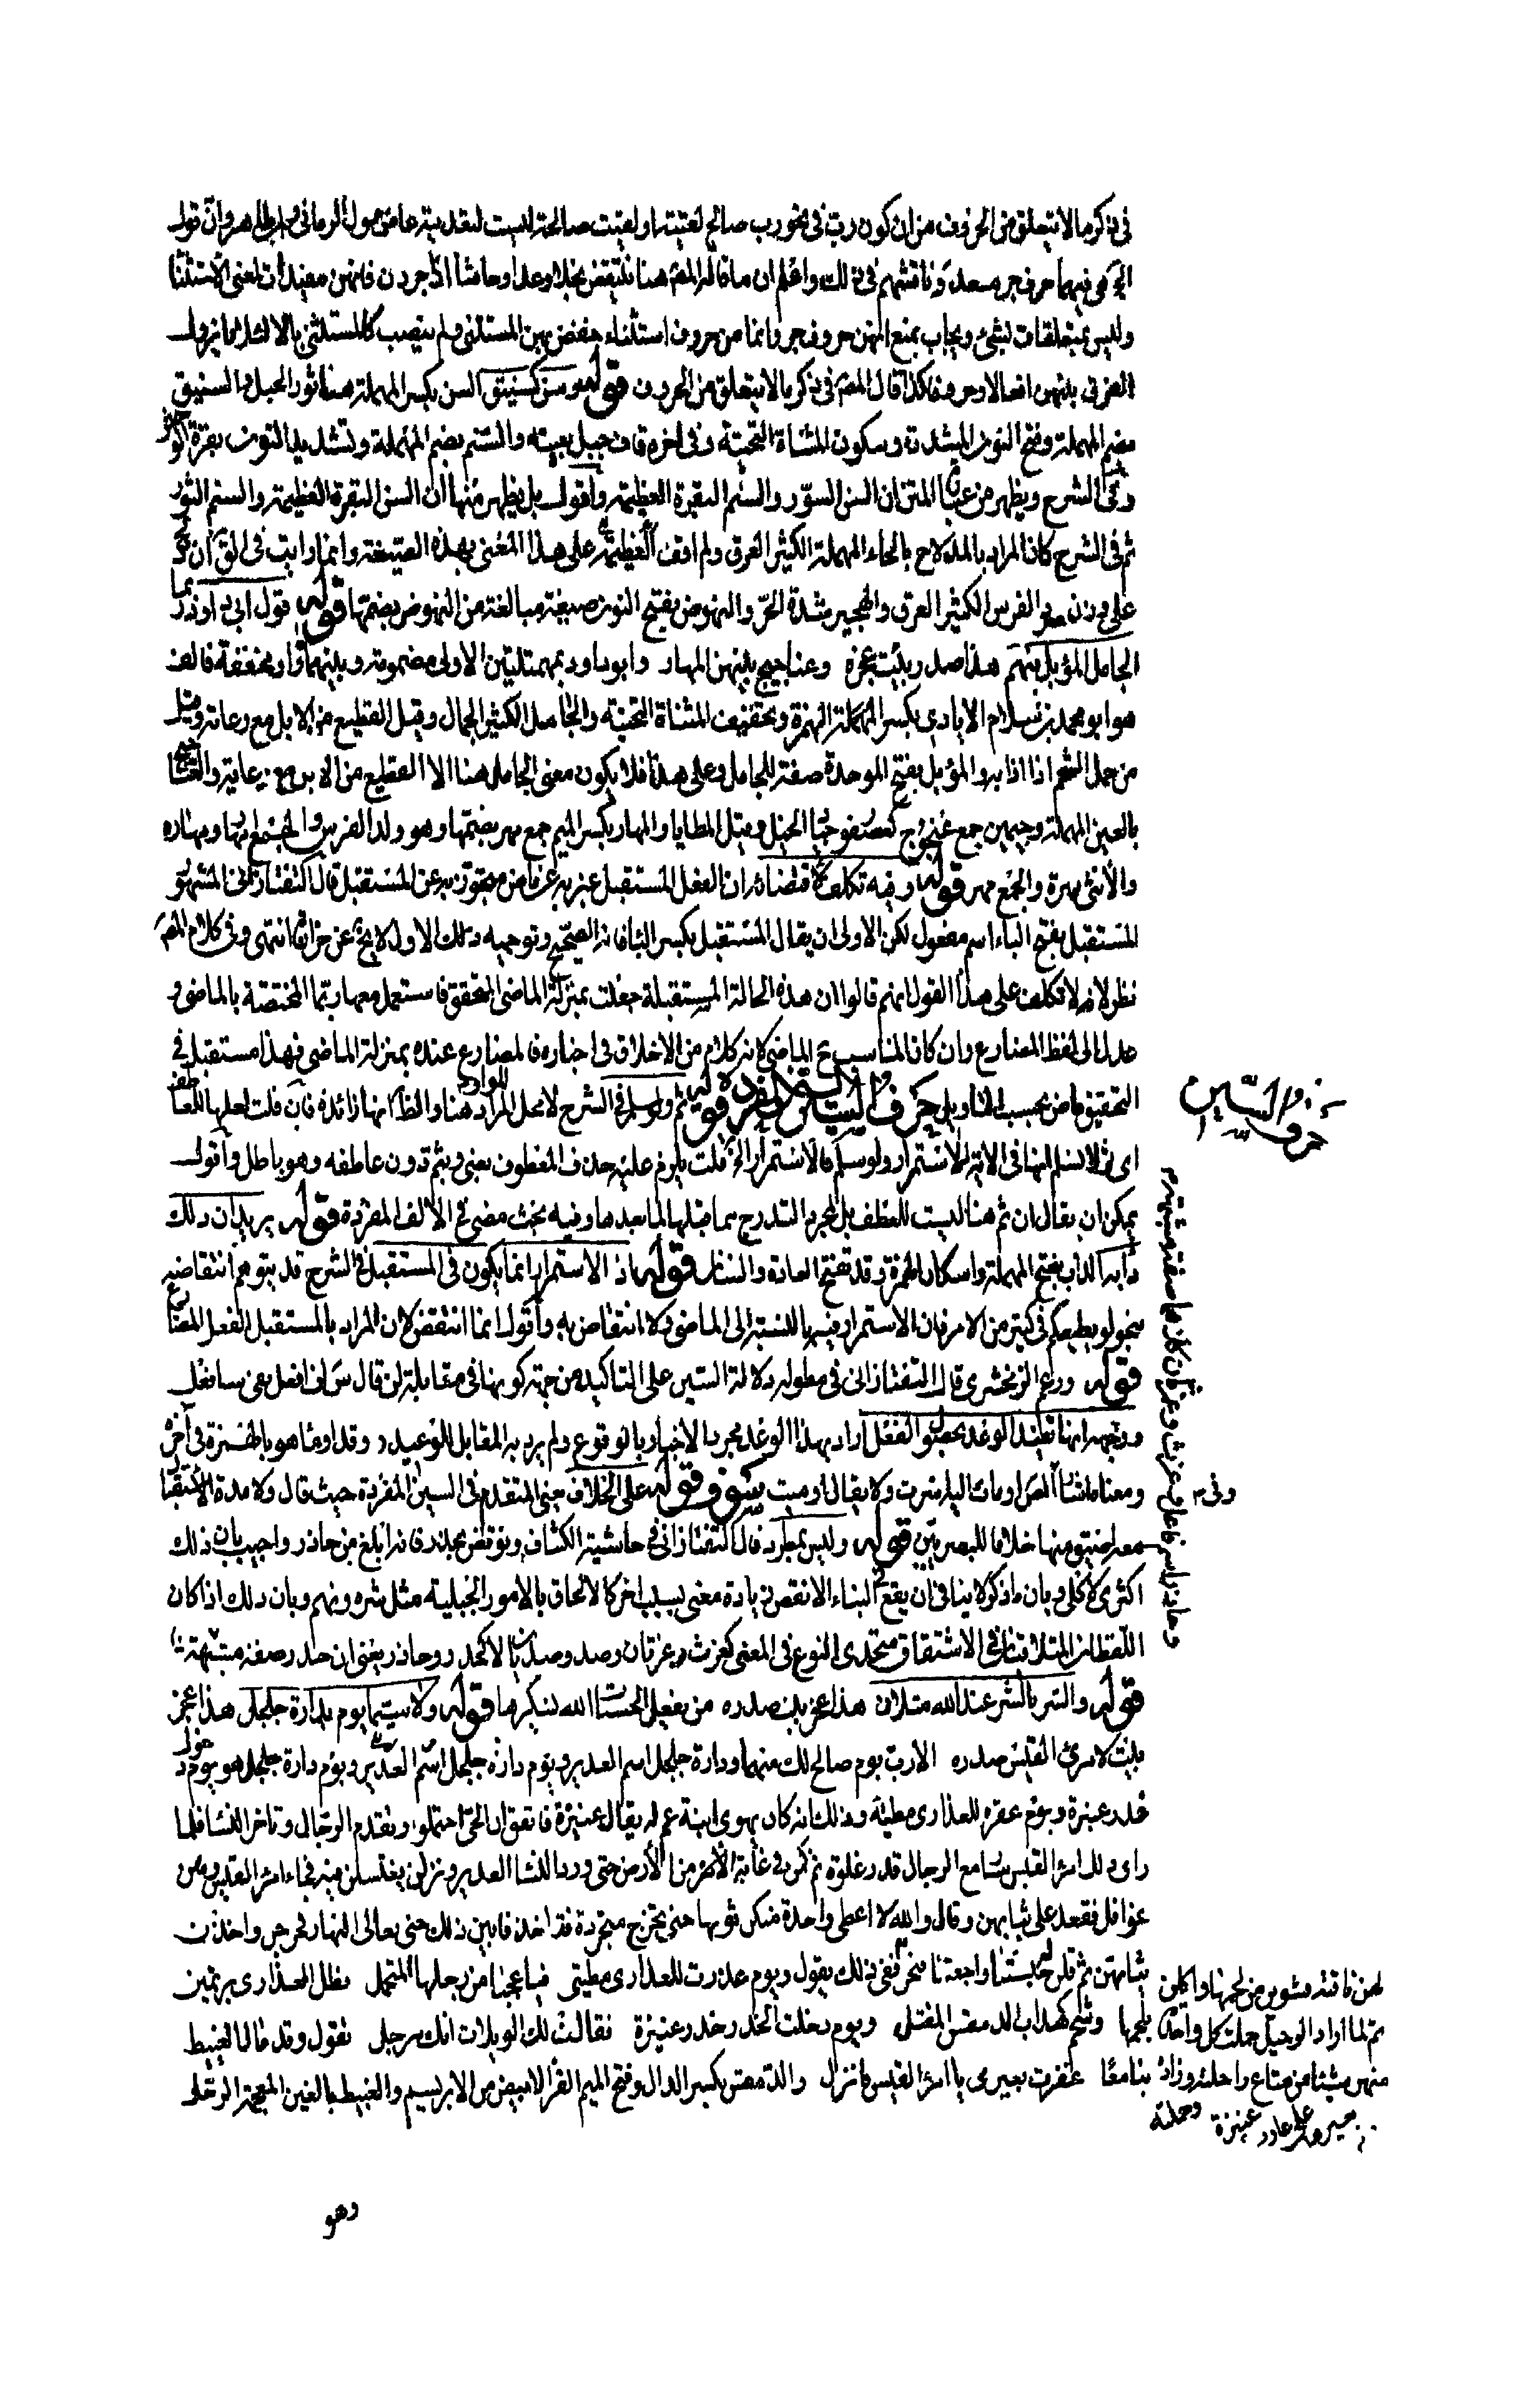 في ذكر ما لا يتعلق من الحروف من ان كون رب في نحو رب صالح لقيته او لقيت صالحة ليست لتعديته عامل هو قول الرماني وابن طاهر وان قول
الجمهور هي فيهما حرف جر معد وناقشهم في ذلك واعلم ان ما قاله المص هنا ينتقض بخلا وعدا وحاشا اذا جررن فانهن مفيدات لمعنى الاستثناء
وليس بمتعلقات بشيء ويجاب بمنع انهن حروف جر وانما هن حروف استثناء خفض بهن المستثنى ولم ينصب كالمستثنى بالا لئلا يزول
الفرق بينهن افعالا وحروفا كذا قال المص في ذكر ما لا يتعلق من الحروف قوله وسن كسنيق السن بكسر المهملة هنا ثور الجبل والسنيق
بضم المهملة وفتح النون المشددة وسكون المثناة التحتية وفي اخره قاف جبل بعينه والسنم بضم المهملة وتشديد النون بقرة الوحش
وفي الشرح ويظهر من عبارة المتن ان السن الثور والسنم البقرة العظيمة واقول بل يظهر منها ان السن البقرة العظيمة والسنم الثور
ثم في الشرح كان المراد بالمدلاح بالحاء المهملة الكثير العرق ولم اقف على هذا المعنى بهذه الصيغة وانما رايت في القرآن
على وزن الفرس الكثير العرق والهجير شدة الحر والنهوض بفتح النون صيغة مبالغة من النهوض بضمها قوله قول ابي داود ربما
الجامل المؤبل فيهم هذا صدر بيت عجزه وعناجيج بينهن المهار وابو داود بمهملتين الاولى مضمومة وبينهما واو مخففة فالف
هو ابو محمد بن سلام الايادي بكسر الهمزة وتخفيف المثناة التحتية والجامل الكثير الجمال وقيل القطيع من الابل مع رعاته وقيل
من جمل الشحم اذا اذابه والمؤبل بفتح الموحدة صفة للجامل وعلى هذا فلا يكون معنى الجامل هنا الا القطيع من الابل مع رعايته والعناجيج
بالعين المهملة وجيمين جمع عنجوج كعصفور جياد الخيل وقيل المطايا والمهار بكسر الميم جمع مهر بضمها وهو ولد الفرس والجمع امهار ومهارة
والأنثى مهرة والجمع مهر قوله وفيه تكلف لاقتضائه ان الفعل المستقبل عبر به عن ماض متجوز به عن المستقبل قال التفتازاني المشهور
المستقبل بفتح الباء اسم مفعول لكن الاولى ان يقال المستقبل بكسر الباء فانه الصحيح وتوجيه ذلك الاول لا يخ عن حزازة انتهى وفي كلام المص
نظر لانه لا تكلف على هذا القول لانهم قالوا ان هذه الحالة المستقبلة جعلت بمنزلة الماضي المحقق فاستعمل معها ربما المختصة بالماضي و
عدل الى لفظ المضارع وان كان المناسب ح الماضي لانه كلام من لا خلاف في اخباره فالمضارع عنده بمنزلة الماضي فهذا مستقبل في
التحقيق ماض بحسب التاويل حرف السين المفردة قوله ثم ولو سلم في الشرح لا محل لايراد للواو هنا والظ انها زائدة فان قلت لعلها للعطف
اي ثم لا نسلم انها في الاية للاستمرار ولو سلم فالاستمرار الخ قلت يلزم عليه حذف المعطوف بعد ثم دون عاطفه وهو باطل واقول
يمكن ان يقال ان ثم هنا ليست للعطف بل لمجرد التدرج مما قبلها لما بعدها وفيه بحث مضى في الألف المفردة قوله يريد ان ذلك
دأبه الداب بفتح المهملة واسكان الهمزة وقد تفتح العادة والشان قوله اذ الاستمرار انما يكون في المستقبل في الشرح قد يتوهم انتقاضه
بنحو لو يطيعكم في كثير من الامر فان الاستمرار فيه بالنسبة الى الماضي ولا انتقاض به وأقول انما انتقض لان المراد بالمستقبل الفعل المضارع
قوله وزعم الزمخشري قال التفتازاني في مطوله دلالة السين على التاكيد من جهة كونها في مقابلة لن قال س لن افعل نفي سافعل
ووجهه انها تفيد الوعد بحصول الفعل اراد بهذا الوعد مجرد الاخبار بالوقوع ولم يرد به المقابل للوعيد وقد اومأ هو بالهمزة في آخره
ومعناه اشار الصحاح اومأت اليه اشرت ولا يقال اوميت سوف قوله على الخلاف يعني المتقدم في السين المفردة حيث قال ولا مدة الاستقبال
معه اضيق منها خلافا للبصريين قوله وليس بمطرد قال التفتازاني في حاشية الكشاف ونوقض بحذر فانه ابلغ من حاذر واجيب بان ذلك
اكثري لا كلي وبان ما ذكر لا ينافي ان يقع في البناء الانقص زيادة معنى بسبب اخر كالالحاق بالامور الجبلية مثل شره ونهم وبان ذلك اذا كان
اللفظان المتلاقيان في الاشتقاق متحدي النوع في المعنى كغرث وغرثان وصد وصديان لا كحذر وحاذر يعني ان حذر صفة مشبهة
قوله والشر بالشر عند الله مثلان هذا عجز بيت صدره من يفعل الحسنات الله يشكرها قوله ولا سيما يوم بدارة جلجل هذا عجز
بيت لامرئ القيس صدره الا رب يوم صالح لك منهما ودارة جلجل اسم الغدير ويوم دارة جلجل هو يوم دخول
خدر عنيزة ويوم عقره للعذارى مطيته وذلك انه كان يهوى ابنة عم له يقال لها عنيزة فاتفق ان الحي احتملوا وتقدم الرجال وتاخر النساء فلما
راى ذلك امرؤ القيس سار مع الرجال قدر غلوة ثم كمن في غابة من الأرض حتى ورد النساء الغدير ونزلن يغتسلن فيه فجاء امرؤ القيس وهن
غوافل فقعد على ثيابهن وقال والله لا اعطي واحدة منكن ثوبها حتى تخرج متجردة فتاخذه فابين ذلك حتى تعالى النهار فخرجن واخذن
ثيابهن ثم قلن له حبستنا واجعتنا فنحر ففي ذلك يقول ويوم عقرت للعذارى مطيتي فيا عجبا من رحلها المتحمل يظل العذارى يرتمين
بلحمها وشحم كهداب الدمقس المفتل ويوم دخلت الخدر خدر عنيزة فقالت لك الويلات انك مرجلي تقول وقد مال الغبيط
بنا معا عقرت بعيري يا امرأ القيس فانزل والدمقس بكسر الدال وفتح الميم القز الابيض من الابريسم والغبيط بالغين المعجمة الرحل
حرف السين
وفي
وحاذر اسم فاعل
لهن ناقته وشوين من لحمها واكلن
ثم لما اراد الرحيل حملت كل واحدة
منهن شيئا من متاع راحلته وزاده
وحملته عنيزة على
وهو